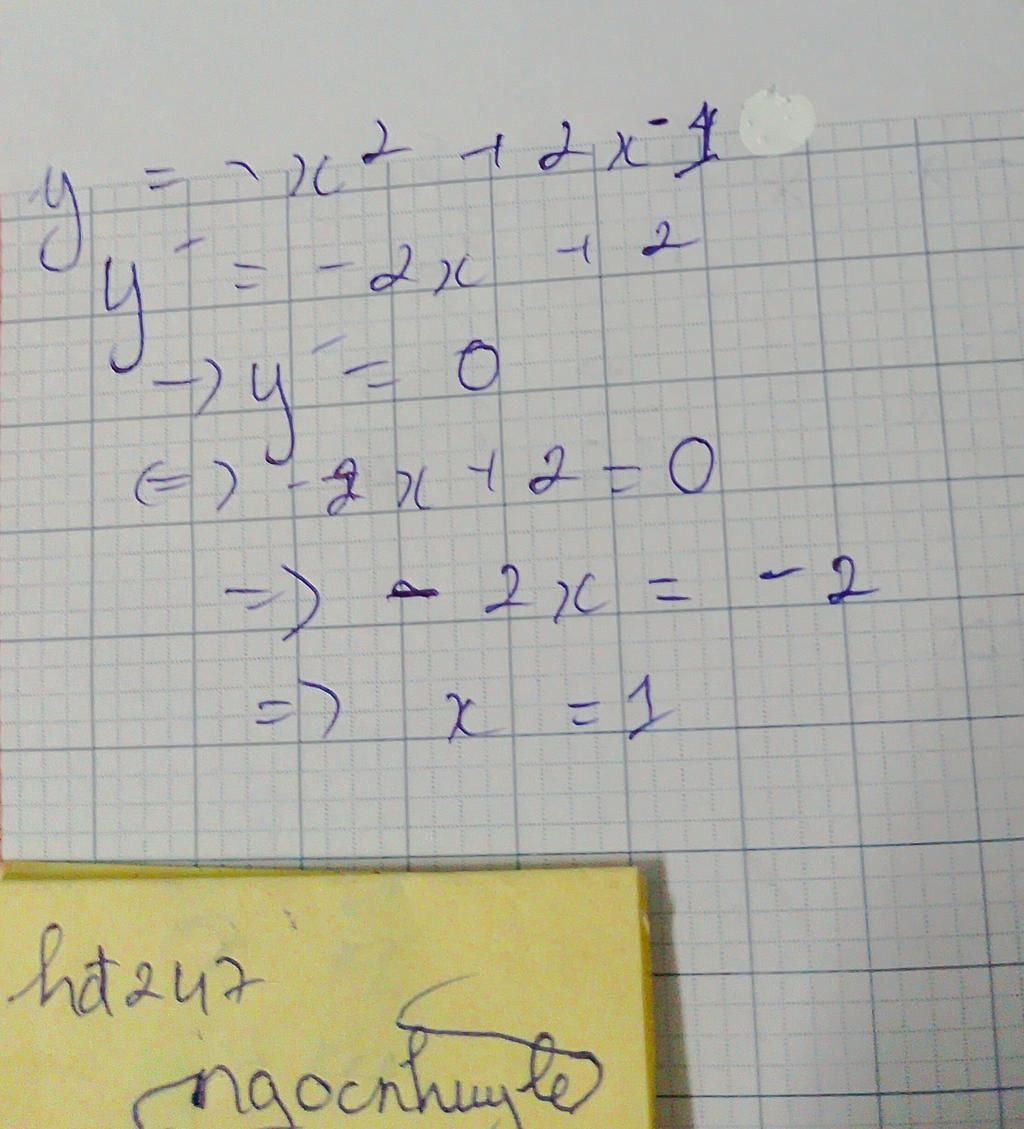 y = -x² + 2x - 1
y' = -2x + 2
→ y' = 0
<=> -2x + 2 = 0
=> -2x = -2
=> x = 1
hđ247
ngocnhuyle